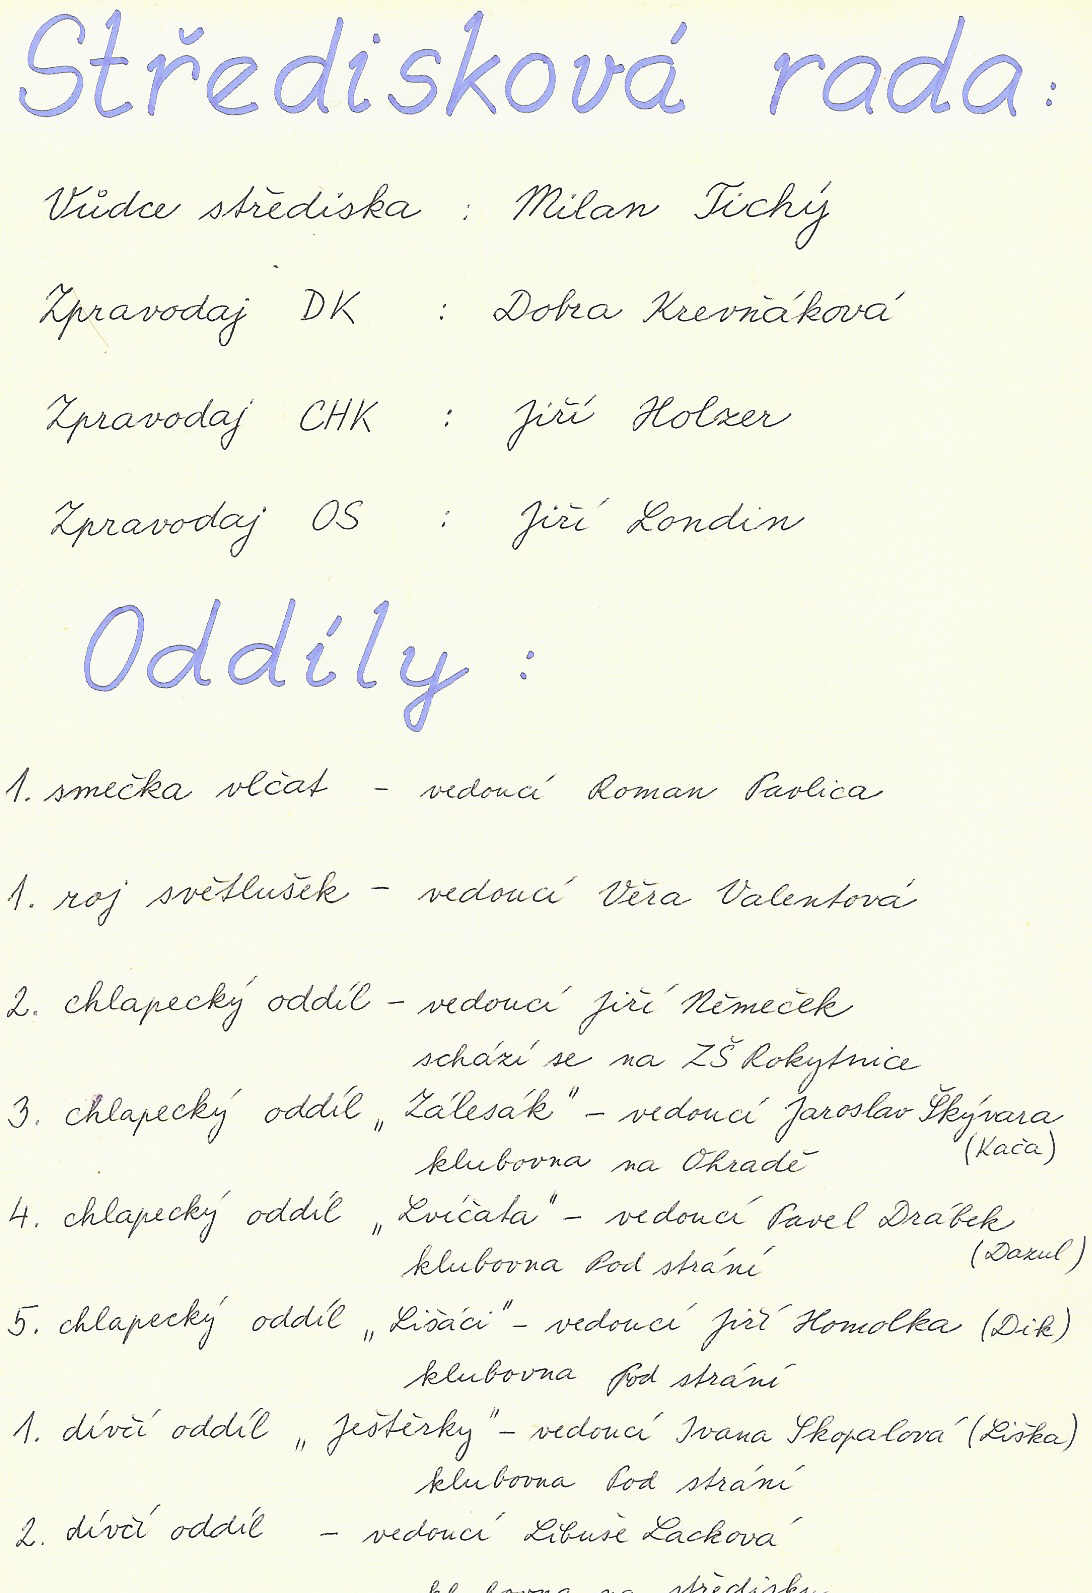 Středisková rada:
Vůdce střediska : Milan Tichý
Zpravodaj DK : Dobra Krevňáková
Zpravodaj CHK : Jiří Holzer
Zpravodaj OS : Jiří Londin
Oddíly :
1. smečka vlčat - vedoucí Roman Pavlica
1. roj světlušek - vedoucí Věra Valentová
2. chlapecký oddíl - vedoucí Jiří Němeček
schází se na ZŠ Rokytnice
3. chlapecký oddíl „Zálesák" - vedoucí Jaroslav Škývara
(Kača)
klubovna na Ohradě
4. chlapecký oddíl „Lvíčata" - vedoucí Pavel Drábek
(Dazul)
klubovna Pod strání
5. chlapecký oddíl „Lišáci" - vedoucí Jiří Homolka (Dik)
klubovna Pod strání
1. dívčí oddíl „Ještěrky" - vedoucí Ivana Skopalová (Liška)
klubovna Pod strání
2. dívčí oddíl - vedoucí Libuše Lacková
klubovna na středisku